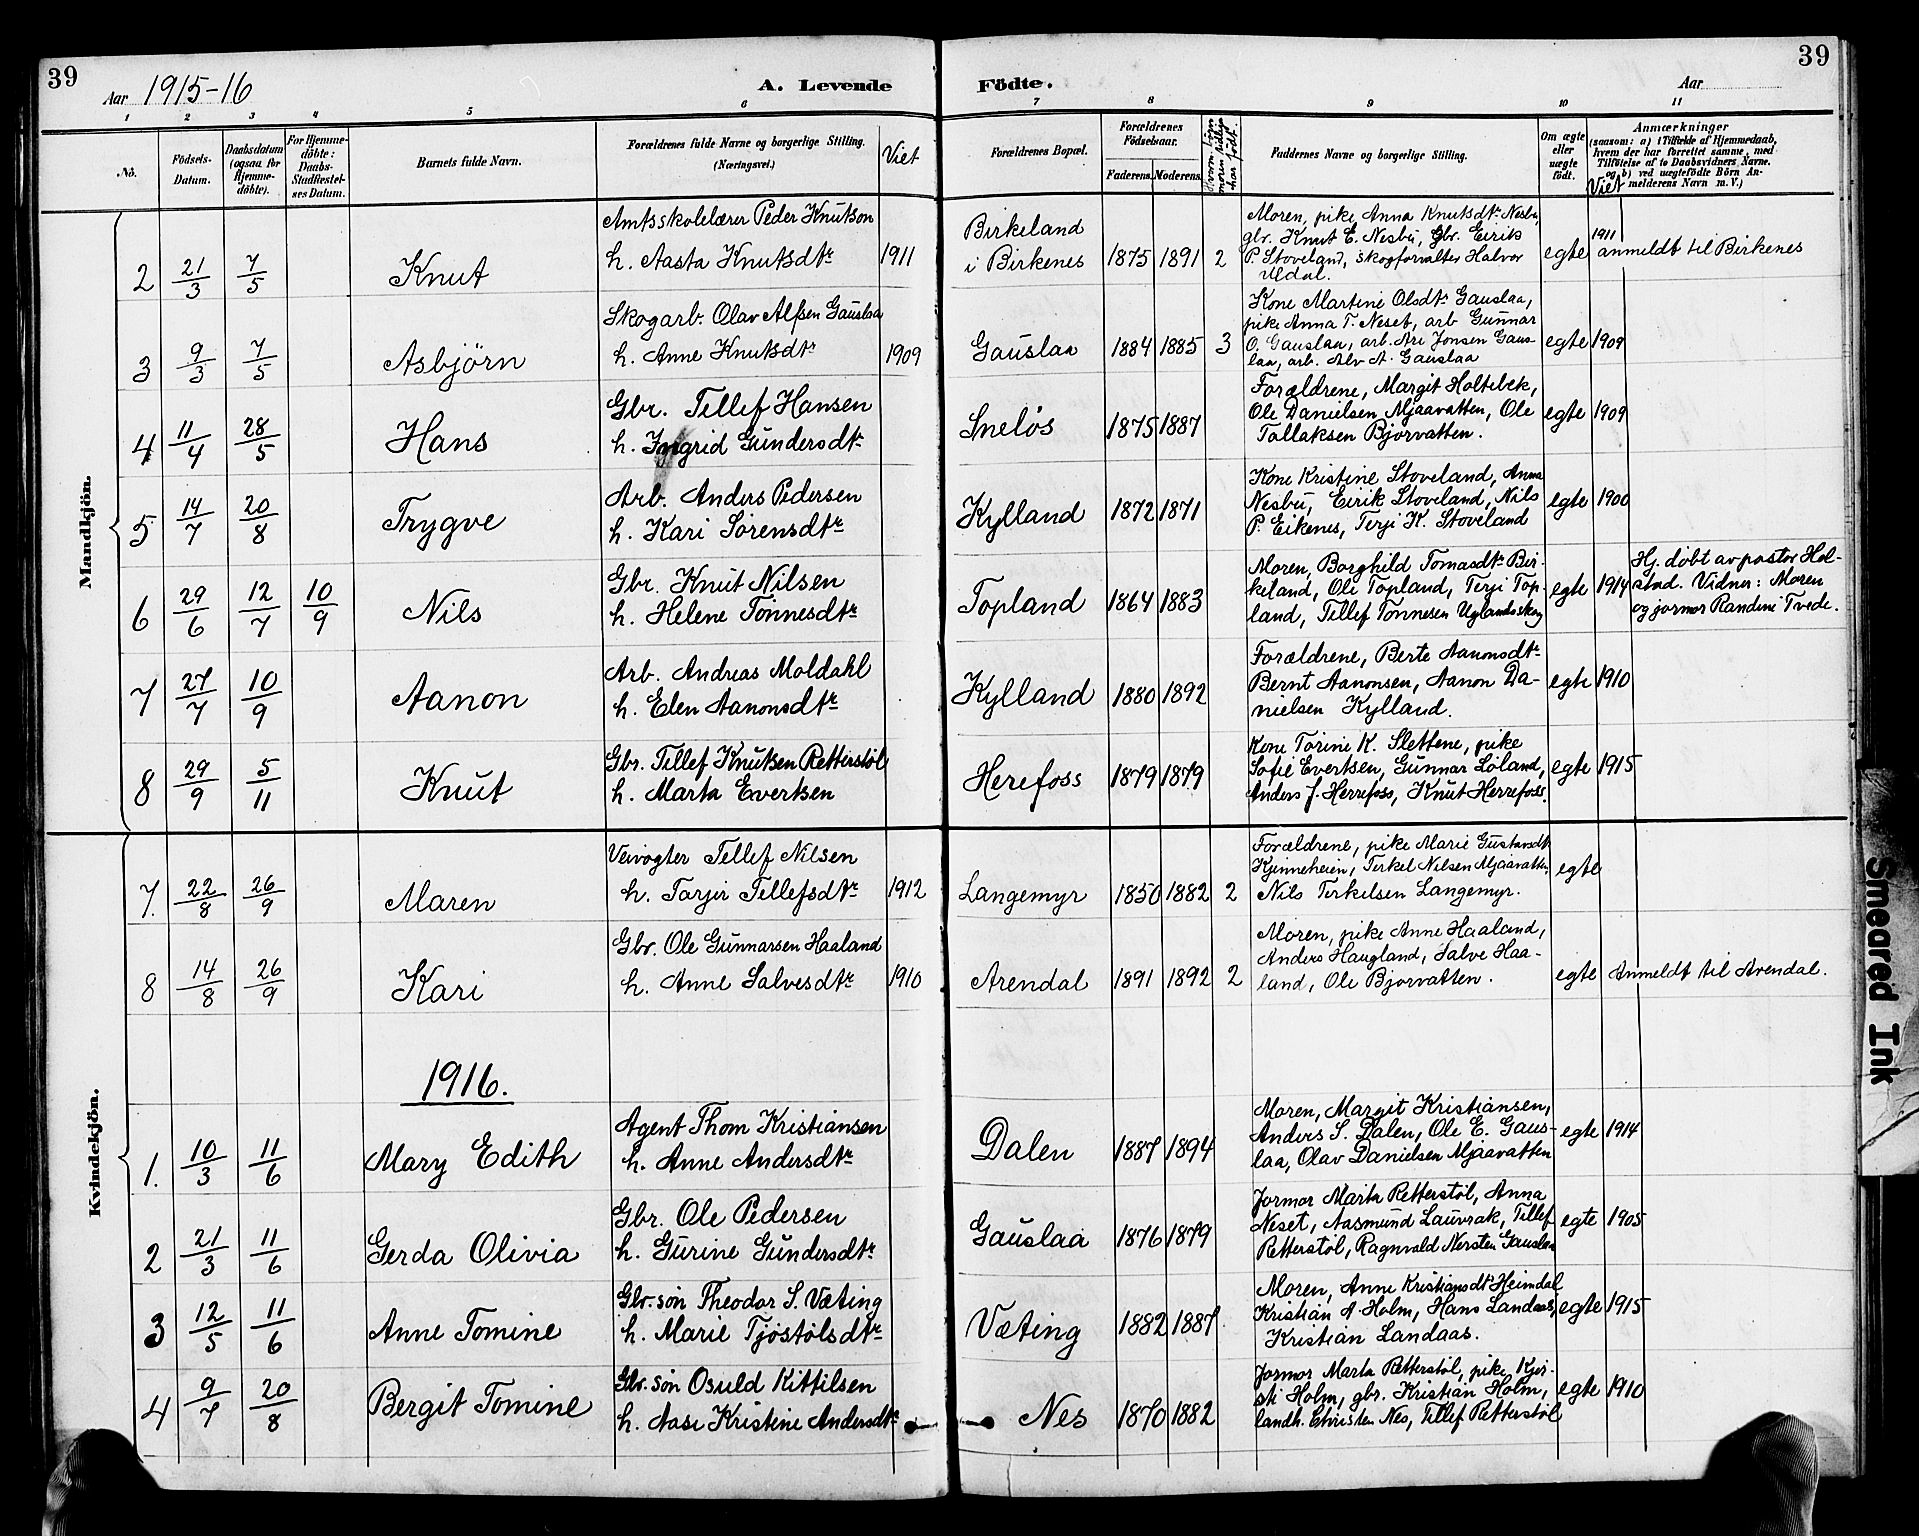 39
39
Aar 1915-16
A. Levende
Födte.
Aar
1 2 3 4 5 6 7 8 9 10 11
No.
Födsels-
Datum.
Daabsdatum
(ogsaa for
Hjemme-
döbte).
For Hjemme-
döbte:
Daabs-
Stadfæstel-
ses Datum.
Barnets fulde Navn.
Forældrenes fulde Navne og borgerlige Stilling.
(Næringsvei.)
Viet
Forældrenes Bopæl.
Forældrenes
Födselsaar.
Faderens. Moderens.
har födt.
Faddernes Navne og borgerlige Stilling.
Om ægte
eller
uægte
födt.
Anmærkninger
(saasom: a) i Tilfælde af Hjemmedaab,
hvem der har forrettet samme, med
Tilföielse af to Daabsvidners Navne.
og b) ved uægtefödte Börn An-
melderens Navn m. V.)
Viet
Mandkjön.
2 21/3 7/5 Knut
Amtsskolelærer Peder Knutson
h. Aasta Knutsdtr 1911
Birkeland
i Birkenes 1875 1891 2
Moren, pike Anna Knutsdtr Nesbu,
gbr. Knut E. Nesbu, Gbr. Eirik
P. Stoveland, skogforvalter Halvor
Uldal.
egte 1911 anmeldt til Birkenes
3 9/3 7/5 Asbjörn
Skogarb. Olav Alfsen Gauslaa
h. Anne Knutsdtr 1909
Gauslaa 1884 1885 3
Kone Martine Olsdtr Gauslaa,
pike Anna T. Neset, arb Gunnar
O. Gauslaa, arb. Ari Jonsen Gaus-
laa, arb. Alv A. Gauslaa
egte 1909
4 11/4 28/5 Hans
Gbr. Tellef Hansen
h. Ingrid Gundersdtr
Sneløs 1875 1887
Forældrene, Margit Holtebek,
Ole Danielsen Mjaavatten, Ole
Tallaksen Bjorvatten.
egte 1909
5 14/7 20/8 Trygve
Arb. Anders Pedersen
h. Kari Sørensdtr
Kylland 1872 1871
Kone Kristine Stoveland, Anna
Nesbu, Eirik Stoveland, Nils
P. Eikenes, Terji K. Stoveland
egte 1900
6 29/6 12/7 10/9 Nils
Gbr. Knut Nilsen
h. Helene Tønnesdtr
Topland 1864 1883
Moren, Borghild Tomasdtr Bir-
keland, Ole Topland, Terji Top-
land, Tellef Tønnesen Uglandsskog
egte 1914
Hj. døbt av pastor Hol-
stad. Vidner: Moren
og jormor Randine Tvede.
7 27/7 10/9 Aanon
Arb. Andreas Moldahl
h. Elen Aanonsdtr
Kylland 1880 1892
Forældrene, Berte Aanonsdtr
Bernt Aanonsen, Aanon Da-
nielsen Kylland.
egte 1910
8 29/9 5/11 Knut
Gbr. Tellef Knutsen Retterstøl
h. Marta Evertsen
Herefoss 1879 1879
Kone Torine K. Slettene, pike
Sofie Evertsen, Gunnar Løland,
Anders J. Herrefoss, Knut Herrefoss.
egte 1915
Kvindekjön.
7. 22/8 26/9 Maren
Veivogter Tellef Nilsen
h. Tarjer Tellefsdtr 1912
Langemyr 1850 1882 2
Forældrene, pike Marie Gustavsdtr
Kjinneheien, Terkel Nilsen Mjaavatten,
Nils Terkelsen Langemyr.
egte
8 14/8 26/9 Kari
Gbr. Ole Gunnarsen Haaland
h. Anne Salvesdtr 1910
Arendal 1891 1892 2
Moren, pike Anne Haaland,
Anders Haugland, Salve Haa-
land, Ole Bjorvatten.
egte Anmeldt til Arendal.
1916.
1. 10/3 11/6 Mary Edith
Agent Thom Kristiansen
h. Anne Andersdtr
Dalen 1887 1894
Moren, Margit Kristiansen,
Anders S. Dalen, Ole E. Gaus-
laa, Olav Danielsen Mjaavatten
egte 1914
2 21/3 11/6 Gerda Olivia
Gbr. Ole Pedersen
h. Gurine Gundersdtr
Gauslaa 1876 1879
Jormor Marta Retterstøl, Anna
Neset, Aasmund Lauvrak, Tellef
Retterstøl, Ragnvald Nersten Gauslaa
egte 1905
3 12/5 11/6 Anne Tomine
Gbr.søn Theodor S. Væting
h. Marie Tjøstolsdtr
Væting 1882 1887
Moren, Anne Kristiansdtr Heimdal
Kristian A. Holm, Hans Landaas,
Kristian Landaas.
egte 1915
4 9/7 20/8 Bergit Tomine
Gbr.søn Osuld Kittilsen
h. Aase Kristine Andersdtr
Nes 1870 1882
Jormor Marta Retterstøl, pike Kjer-
sti Holm, gbr. Kristian Holm,
landh. Christen Nes, Tellef Retterstøl
egte 1910
Smeared Ink